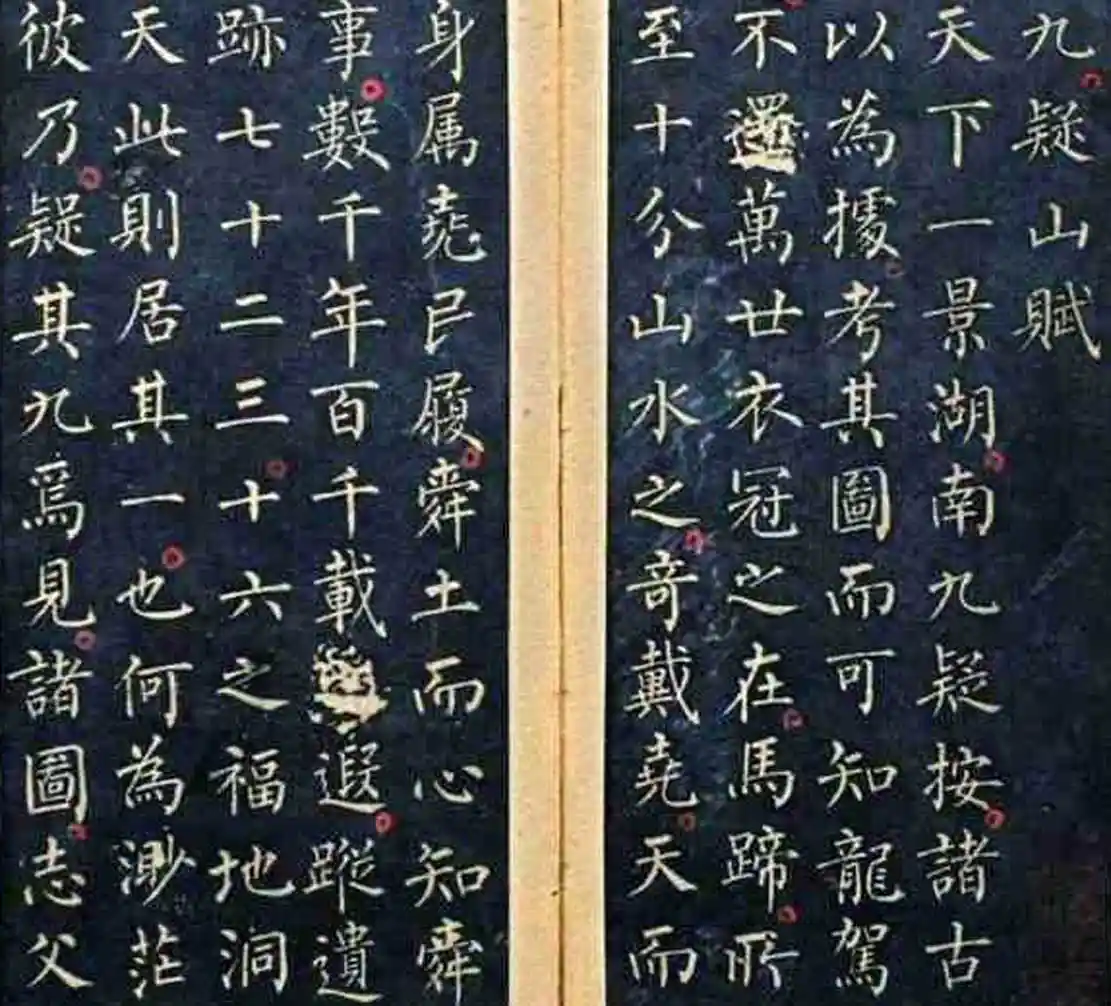 九疑山賦
天下一景湖南九疑按諸古
以為據考其圖而可知龍駕
不還萬廿衣冠之在馬蹄所
至十分山水之奇戴堯天而
身属堯已履舜土而心知舜
事數千年百千載遐蹤遺
跡七十二三十六之福地洞
天此則居其一也何為渺茫
彼乃疑其九焉見諸圖志父